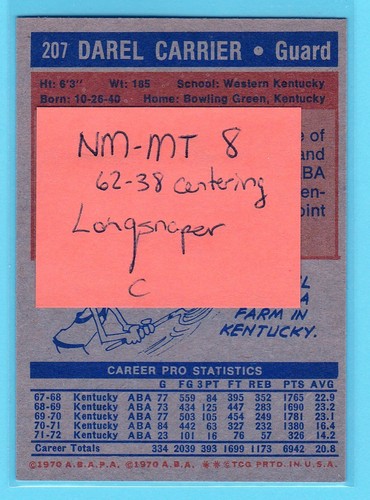 207 DAREL CARRIER • Guard
Ht: 6'3" Wt: 185 School: Western Kentucky
Born: 10-26-40 Home: Bowling Green, Kentucky
e of
and
BA
en-
oint
NM-MT 8
62-38 centering
Longsnaper
C
L
A
FARM IN
KENTUCKY.
CAREER PRO STATISTICS
G FG 3PT FT REB PTS AVG
67-68 Kentucky ABA 77 559 84 395 352 1765 22.9
68-69 Kentucky ABA 73 434 125 447 283 1690 23.2
69-70 Kentucky ABA 77 503 105 454 249 1781 23.1
70-71 Kentucky ABA 84 442 63 327 232 1380 16.4
71-72 Kentucky ABA 23 101 16 76 57 326 14.2
Career Totals 334 2039 393 1699 1173 6942 20.8
©1970 A.B.A.P.A. ©1970 A.B.A. ® ® ©TCG PRTD. IN U.S.A.